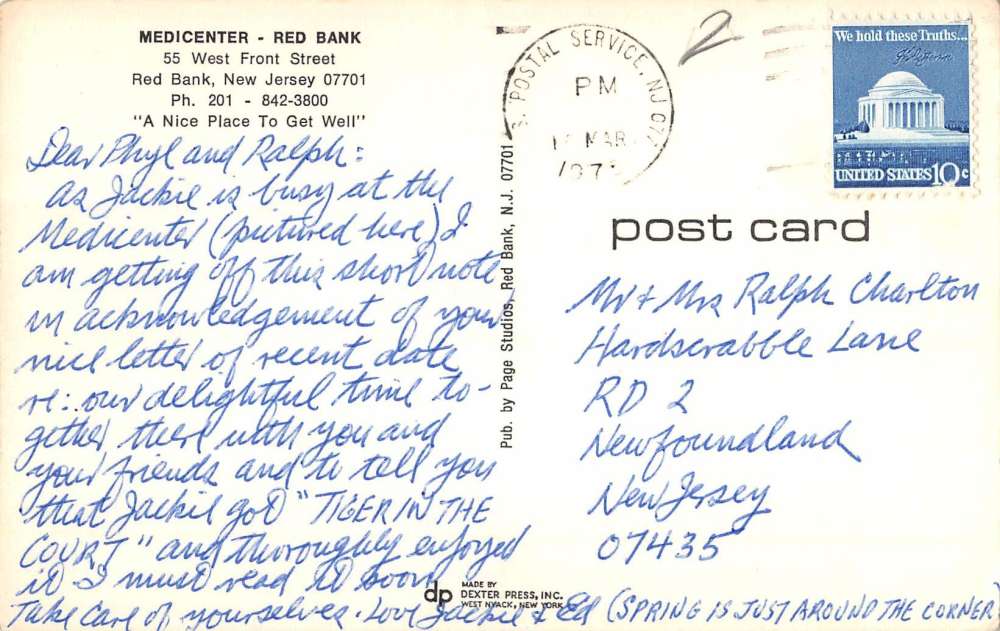 MEDICENTER - RED BANK
55 West Front Street
Red Bank, New Jersey 07701
Ph. 201 - 842-3800
"A Nice Place To Get Well"
Dear Phyl and Ralph:
as Jackie is busy at the
Medicenter (pictured here) I
am getting off this short note
in acknowledgement of your
nice letter of recent date
re: our delightful time to-
gether there with you and
your friends and to tell you
that Jackie got "TIGER IN THE
COURT" and thoroughly enjoyed
it I must read it soon
Take care of yourselves. Love Jackie & Ed (SPRING IS JUST AROUND THE CORNER)
Pub. by Page Studios, Red Bank, N.J. 07701
dp
MADE BY
DEXTER PRESS, INC.
WEST NYACK, NEW YORK
S. POSTAL SERVICE, NJ 077
PM
MAR
197
2
We hold these Truths...
UNITED STATES 10c
post card
Mr + Mrs Ralph Charlton
Hardscrabble Lane
RD 2
Newfoundland
New Jersey
07435